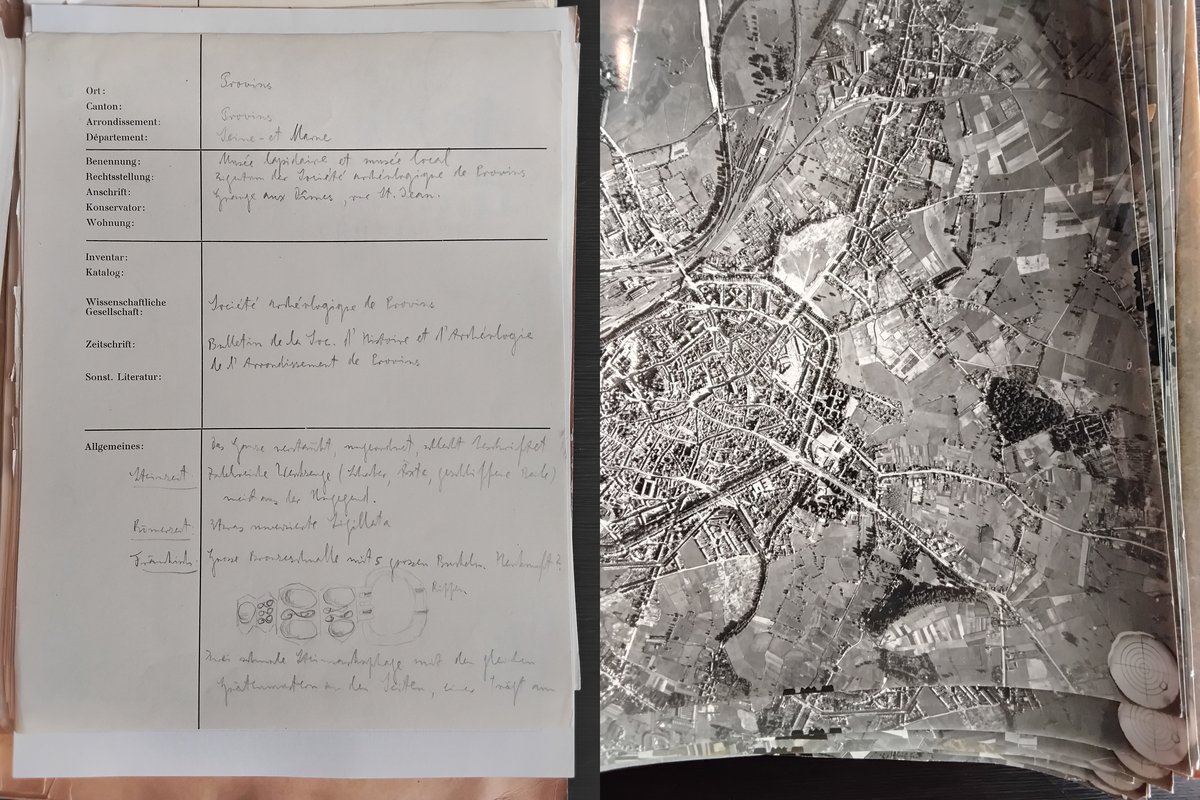 Ort: Provins
Canton:
Arrondissement: Provins
Département: Seine-et Marne
Benennung: Musée lapidaire et musée local
Rechtsstellung: Eigentum der Société archéologique de Provins
Anschrift: Grange aux Dîmes, rue St. Jean.
Konservator:
Wohnung:
Inventar:
Katalog:
Wissenschaftliche
Gesellschaft: Société archéologique de Provins
Zeitschrift: Bulletin de la Soc. d'Histoire et d'Archéologie
de l'Arrondissement de Provins
Sonst. Literatur:
Allgemeines: Das Ganze verstaubt, ungeordnet, schlecht beschriftet
Steinzeit Zahlreiche Werkzeuge (Schaber, Äxte, geschliffene Beile)
meist aus der Umgegend.
Römerzeit Etwas unverzierte Sigillata
Fränkisch Grosse Bronzeschnalle mit 5 grossen Buckeln. Herkunft?
Rippen
mit den gleichen
an den Seiten,